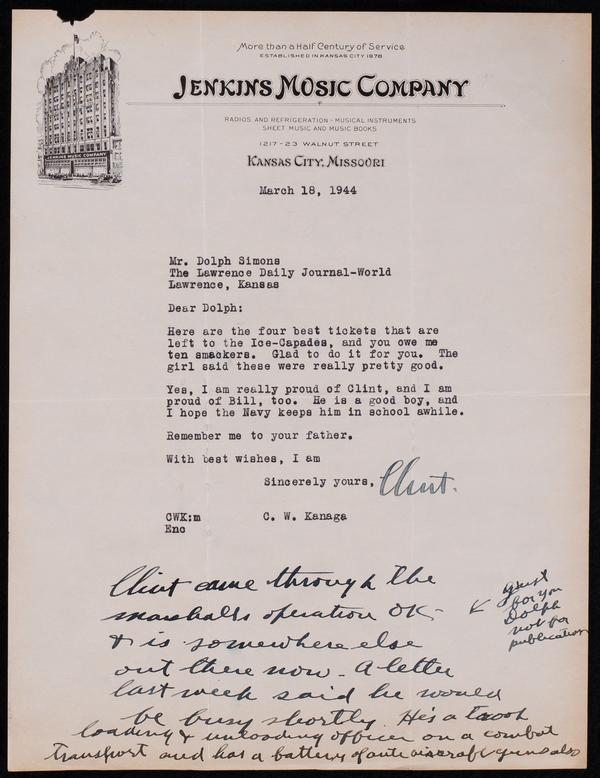 More than a Half Century of Service
ESTABLISHED IN KANSAS CITY 1878
JENKINS MUSIC COMPANY
RADIOS AND REFRIGERATION - MUSICAL INSTRUMENTS
SHEET MUSIC AND MUSIC BOOKS
1217-23 WALNUT STREET
KANSAS CITY, MISSOURI
JENKINS MUSIC COMPANY
March 18, 1944
Mr. Dolph Simons
The Lawrence Daily Journal-World
Lawrence, Kansas
Dear Dolph:
Here are the four best tickets that are
left to the Ice-Capades, and you owe me
ten smackers.  Glad to do it for you.  The
girl said these were really pretty good.
Yes, I am really proud of Clint, and I am
proud of Bill, too.  He is a good boy, and
I hope the Navy keeps him in school awhile.
Remember me to your father.
With best wishes, I am
Sincerely yours,
Clint.
CWK:m
C. W. Kanaga
Enc
Clint came through the
marshalls operation OK-
& is somewhere else
out there now. A letter
last week said he would
be busy shortly. He's a troop
loading & unloading officer on a combat
transport and has a battery of anti aircraft guns also
just
for you
Dolph
not for
publication